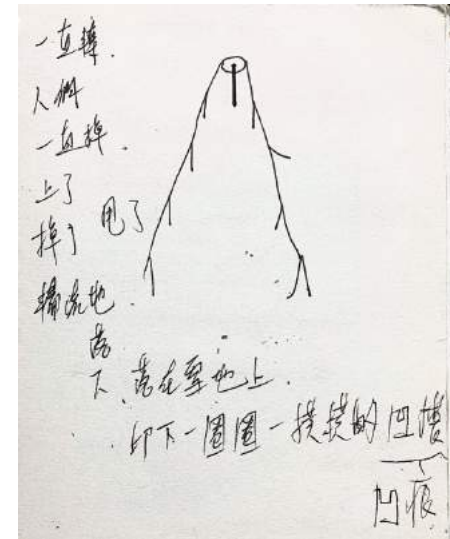 一直轉.
人們
一直掉.
上了
掉了 甩了
輪流地
落
下.落在雪地上.
印下一圈圈一的凹槽
凹痕